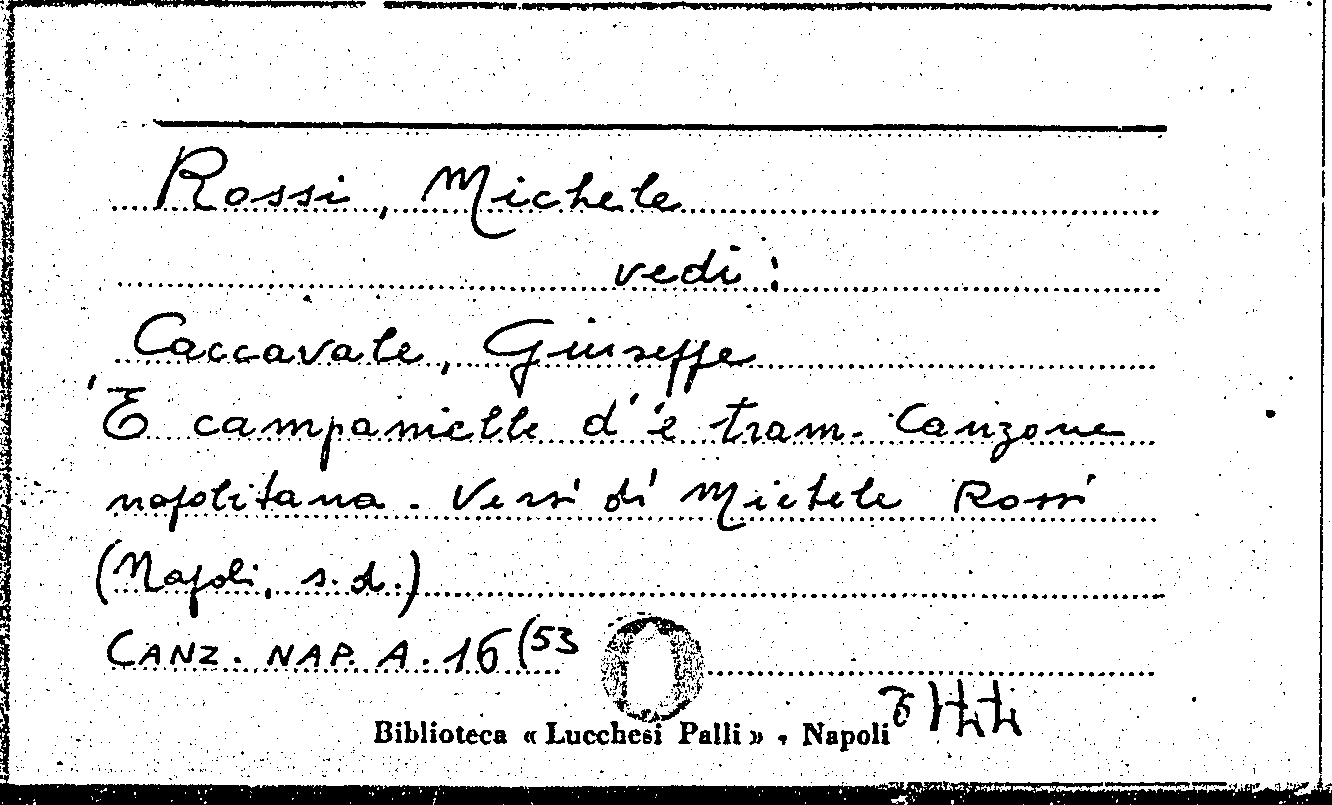 Rossi, Michele
vedi:
Caccavale, Giuseppe
'E campanielle d''e tram. Canzone
napolitana. Versi di Michele Rossi
(Napoli, s.d.)
CANZ. NAP. A. 16(53
Biblioteca « Lucchesi Palli » . Napoli